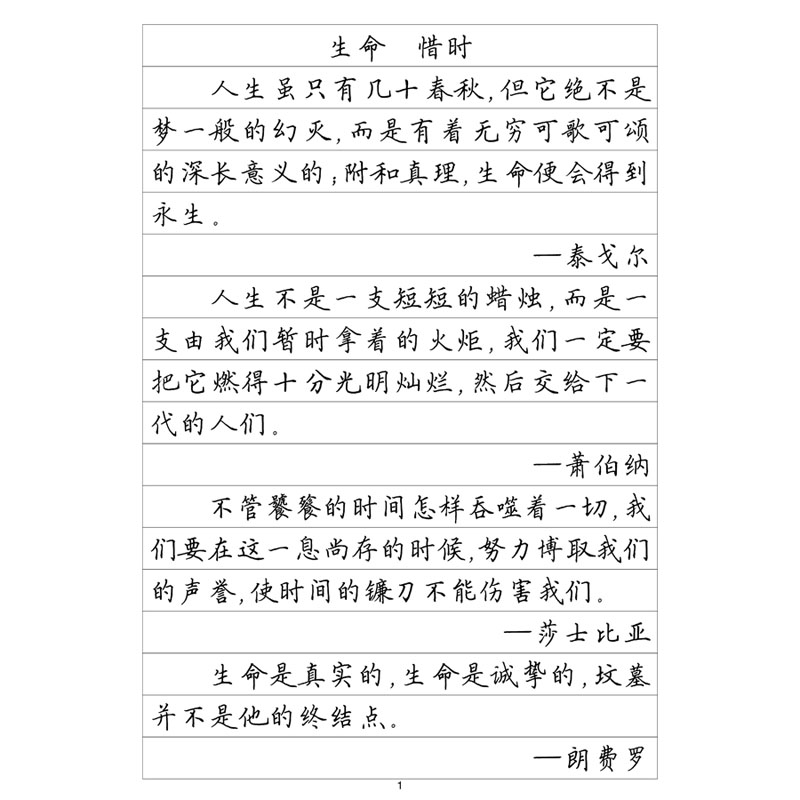 生命　惜时
人生虽只有几十春秋,但它绝不是
梦一般的幻灭,而是有着无穷可歌可颂
的深长意义的;附和真理,生命便会得到
永生。
—泰戈尔
人生不是一支短短的蜡烛,而是一
支由我们暂时拿着的火炬,我们一定要
把它燃得十分光明灿烂,然后交给下一
代的人们。
—萧伯纳
不管饕餮的时间怎样吞噬着一切,我
们要在这一息尚存的时候,努力博取我们
的声誉,使时间的镰刀不能伤害我们。
—莎士比亚
生命是真实的,生命是诚挚的,坟墓
并不是他的终结点。
—朗费罗
1